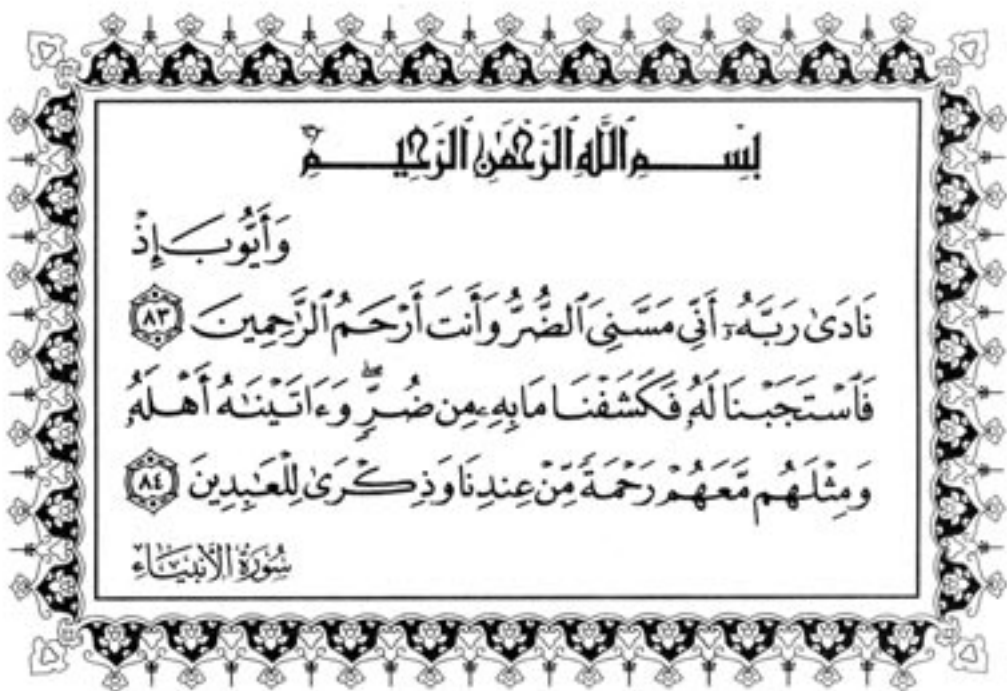 بِسْمِ ٱللَّهِ ٱلرَّحْمَٰنِ ٱلرَّحِيمِ
وَأَيُّوبَ إِذْ
نَادَىٰ رَبَّهُۥٓ أَنِّي مَسَّنِيَ ٱلضُّرُّ وَأَنتَ أَرْحَمُ ٱلرَّٰحِمِينَ ٨٣
فَٱسْتَجَبْنَا لَهُۥ فَكَشَفْنَا مَا بِهِۦ مِن ضُرٍّۖ وَءَاتَيْنَٰهُ أَهْلَهُۥ
وَمِثْلَهُم مَّعَهُمْ رَحْمَةً مِّنْ عِندِنَا وَذِكْرَىٰ لِلْعَٰبِدِينَ ٨٤
سُورَةُ الأَنبِيَاءِ